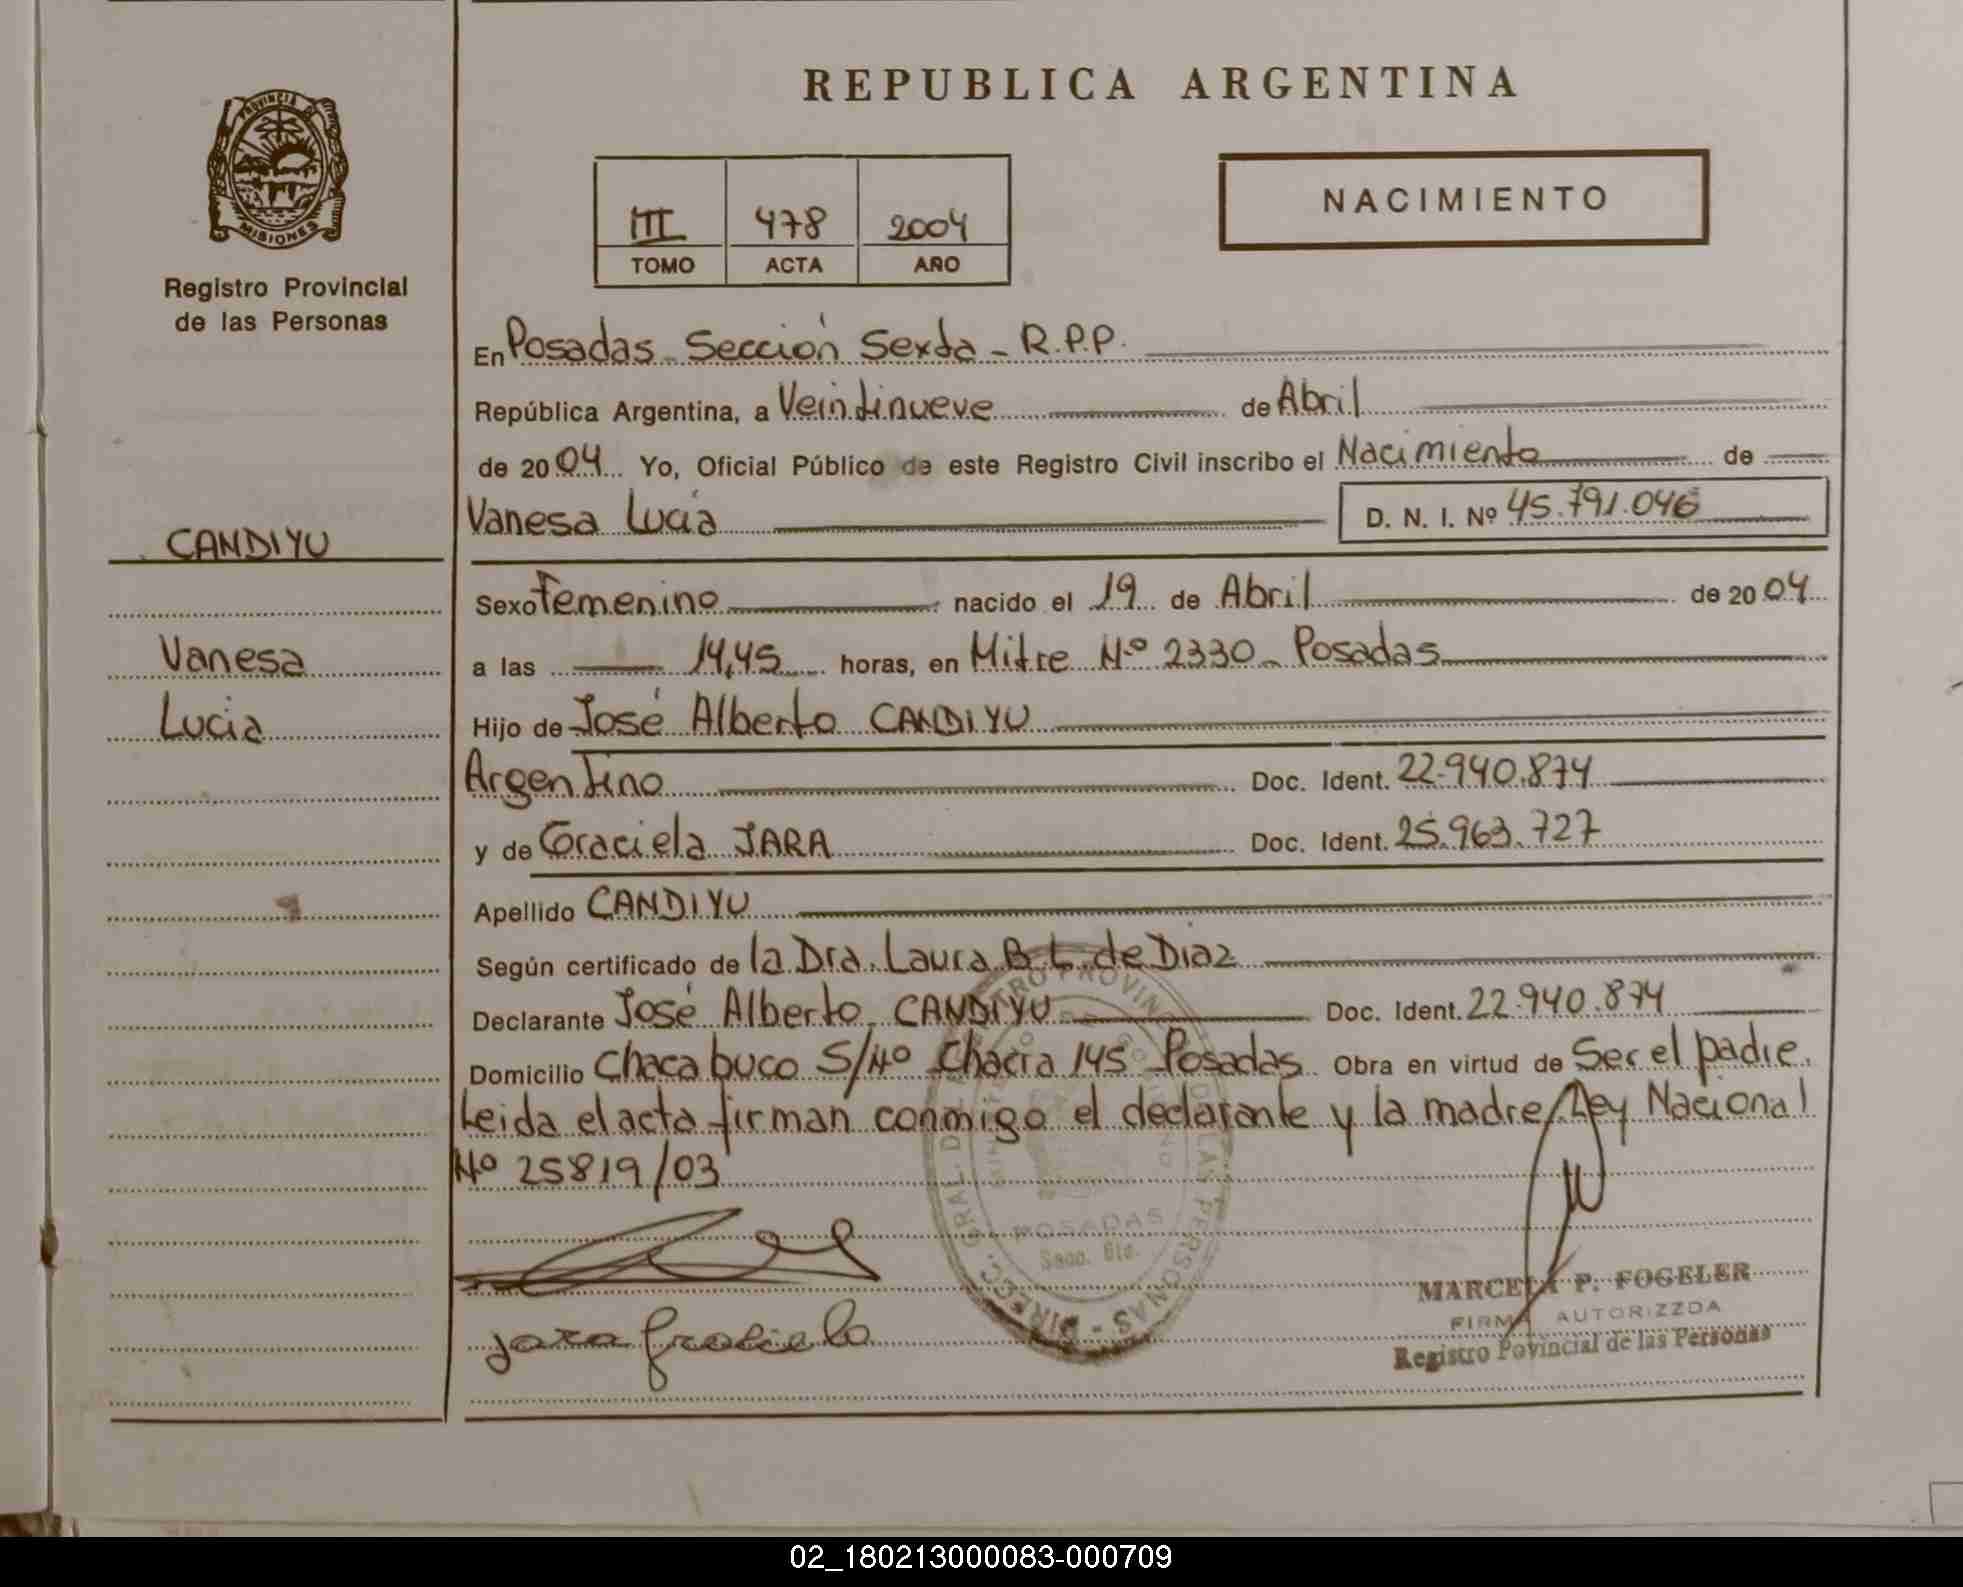 REPUBLICA ARGENTINA
PROVINCIA DE
MISIONES
Registro Provincial
de las Personas
III 478 2004
TOMO ACTA AÑO
NACIMIENTO
En Posadas Sección Sexta - R.P.P.
República Argentina, a Veintinueve de Abril
de 2004 Yo, Oficial Público de este Registro Civil inscribo el Nacimiento de
Vanesa Lucía D. N. I. Nº 45.791.046
CANDIYU
Vanesa
Lucia
Sexo Femenino nacido el 19 de Abril de 2004
a las 14,45 horas, en Mitre Nº 2330 - Posadas
Hijo de José Alberto CANDIYU
Argentino Doc. Ident. 22.940.874
y de Graciela JARA Doc. Ident. 25.963.727
Apellido CANDIYU
Según certificado de la Dra. Laura B. L. de Diaz
Declarante José Alberto CANDIYU Doc. Ident. 22.940.874
Domicilio Chacabuco S/Nº Chacra 145 Posadas Obra en virtud de Ser el padre.
Leida el acta firman conmigo el declarante y la madre/Ley Nacional
Nº 25819/03
POSADAS
Secc. 6ta.
Jara Graciela
MARCELA P. FOGELER
FIRMA AUTORIZZDA
Registro Povincial de las Personas
02_180213000083-000709